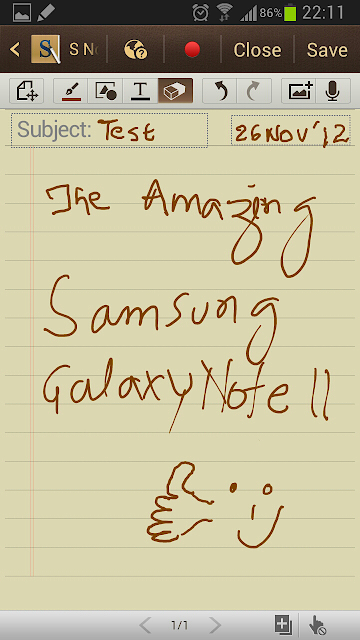 86% 22:11
S No Close Save
T
Subject: Test 26 Nov'12
The Amazing
Samsung
Galaxy Note II
1/1